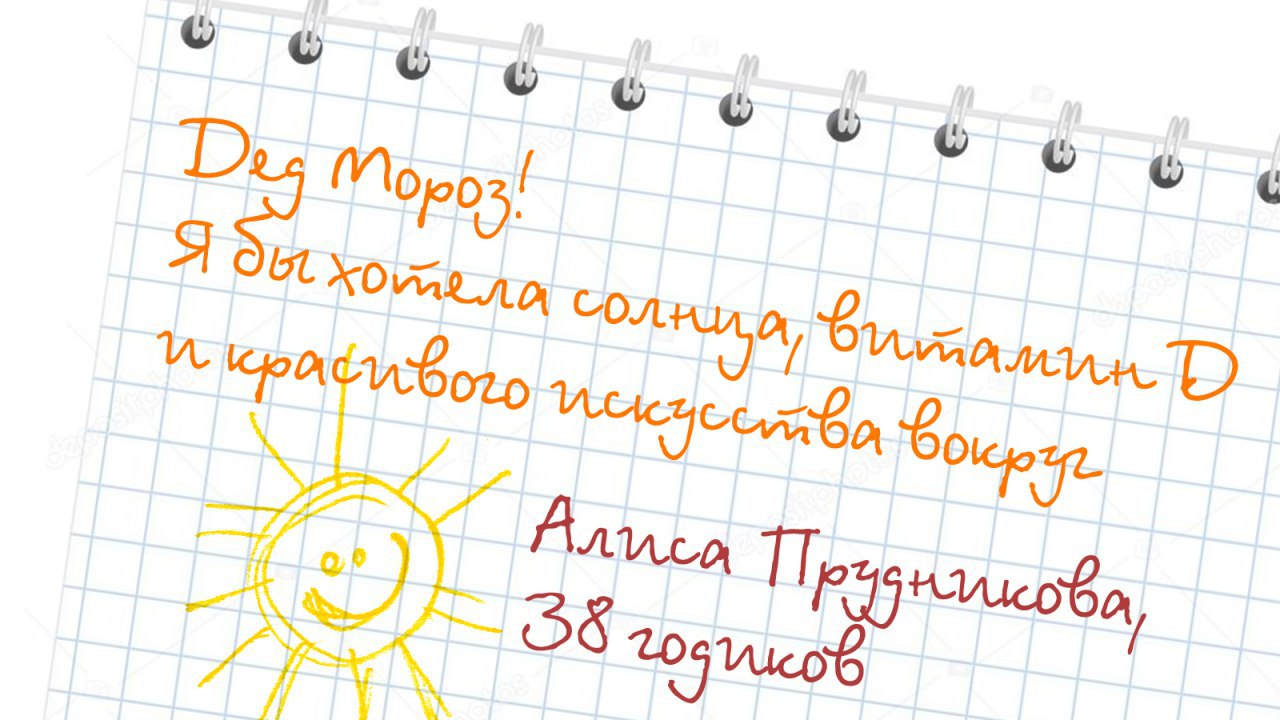 Дед Мороз!
Я бы хотела солнца, витамин D
и красивого искусства вокруг
Алиса Прудникова,
38 годиков